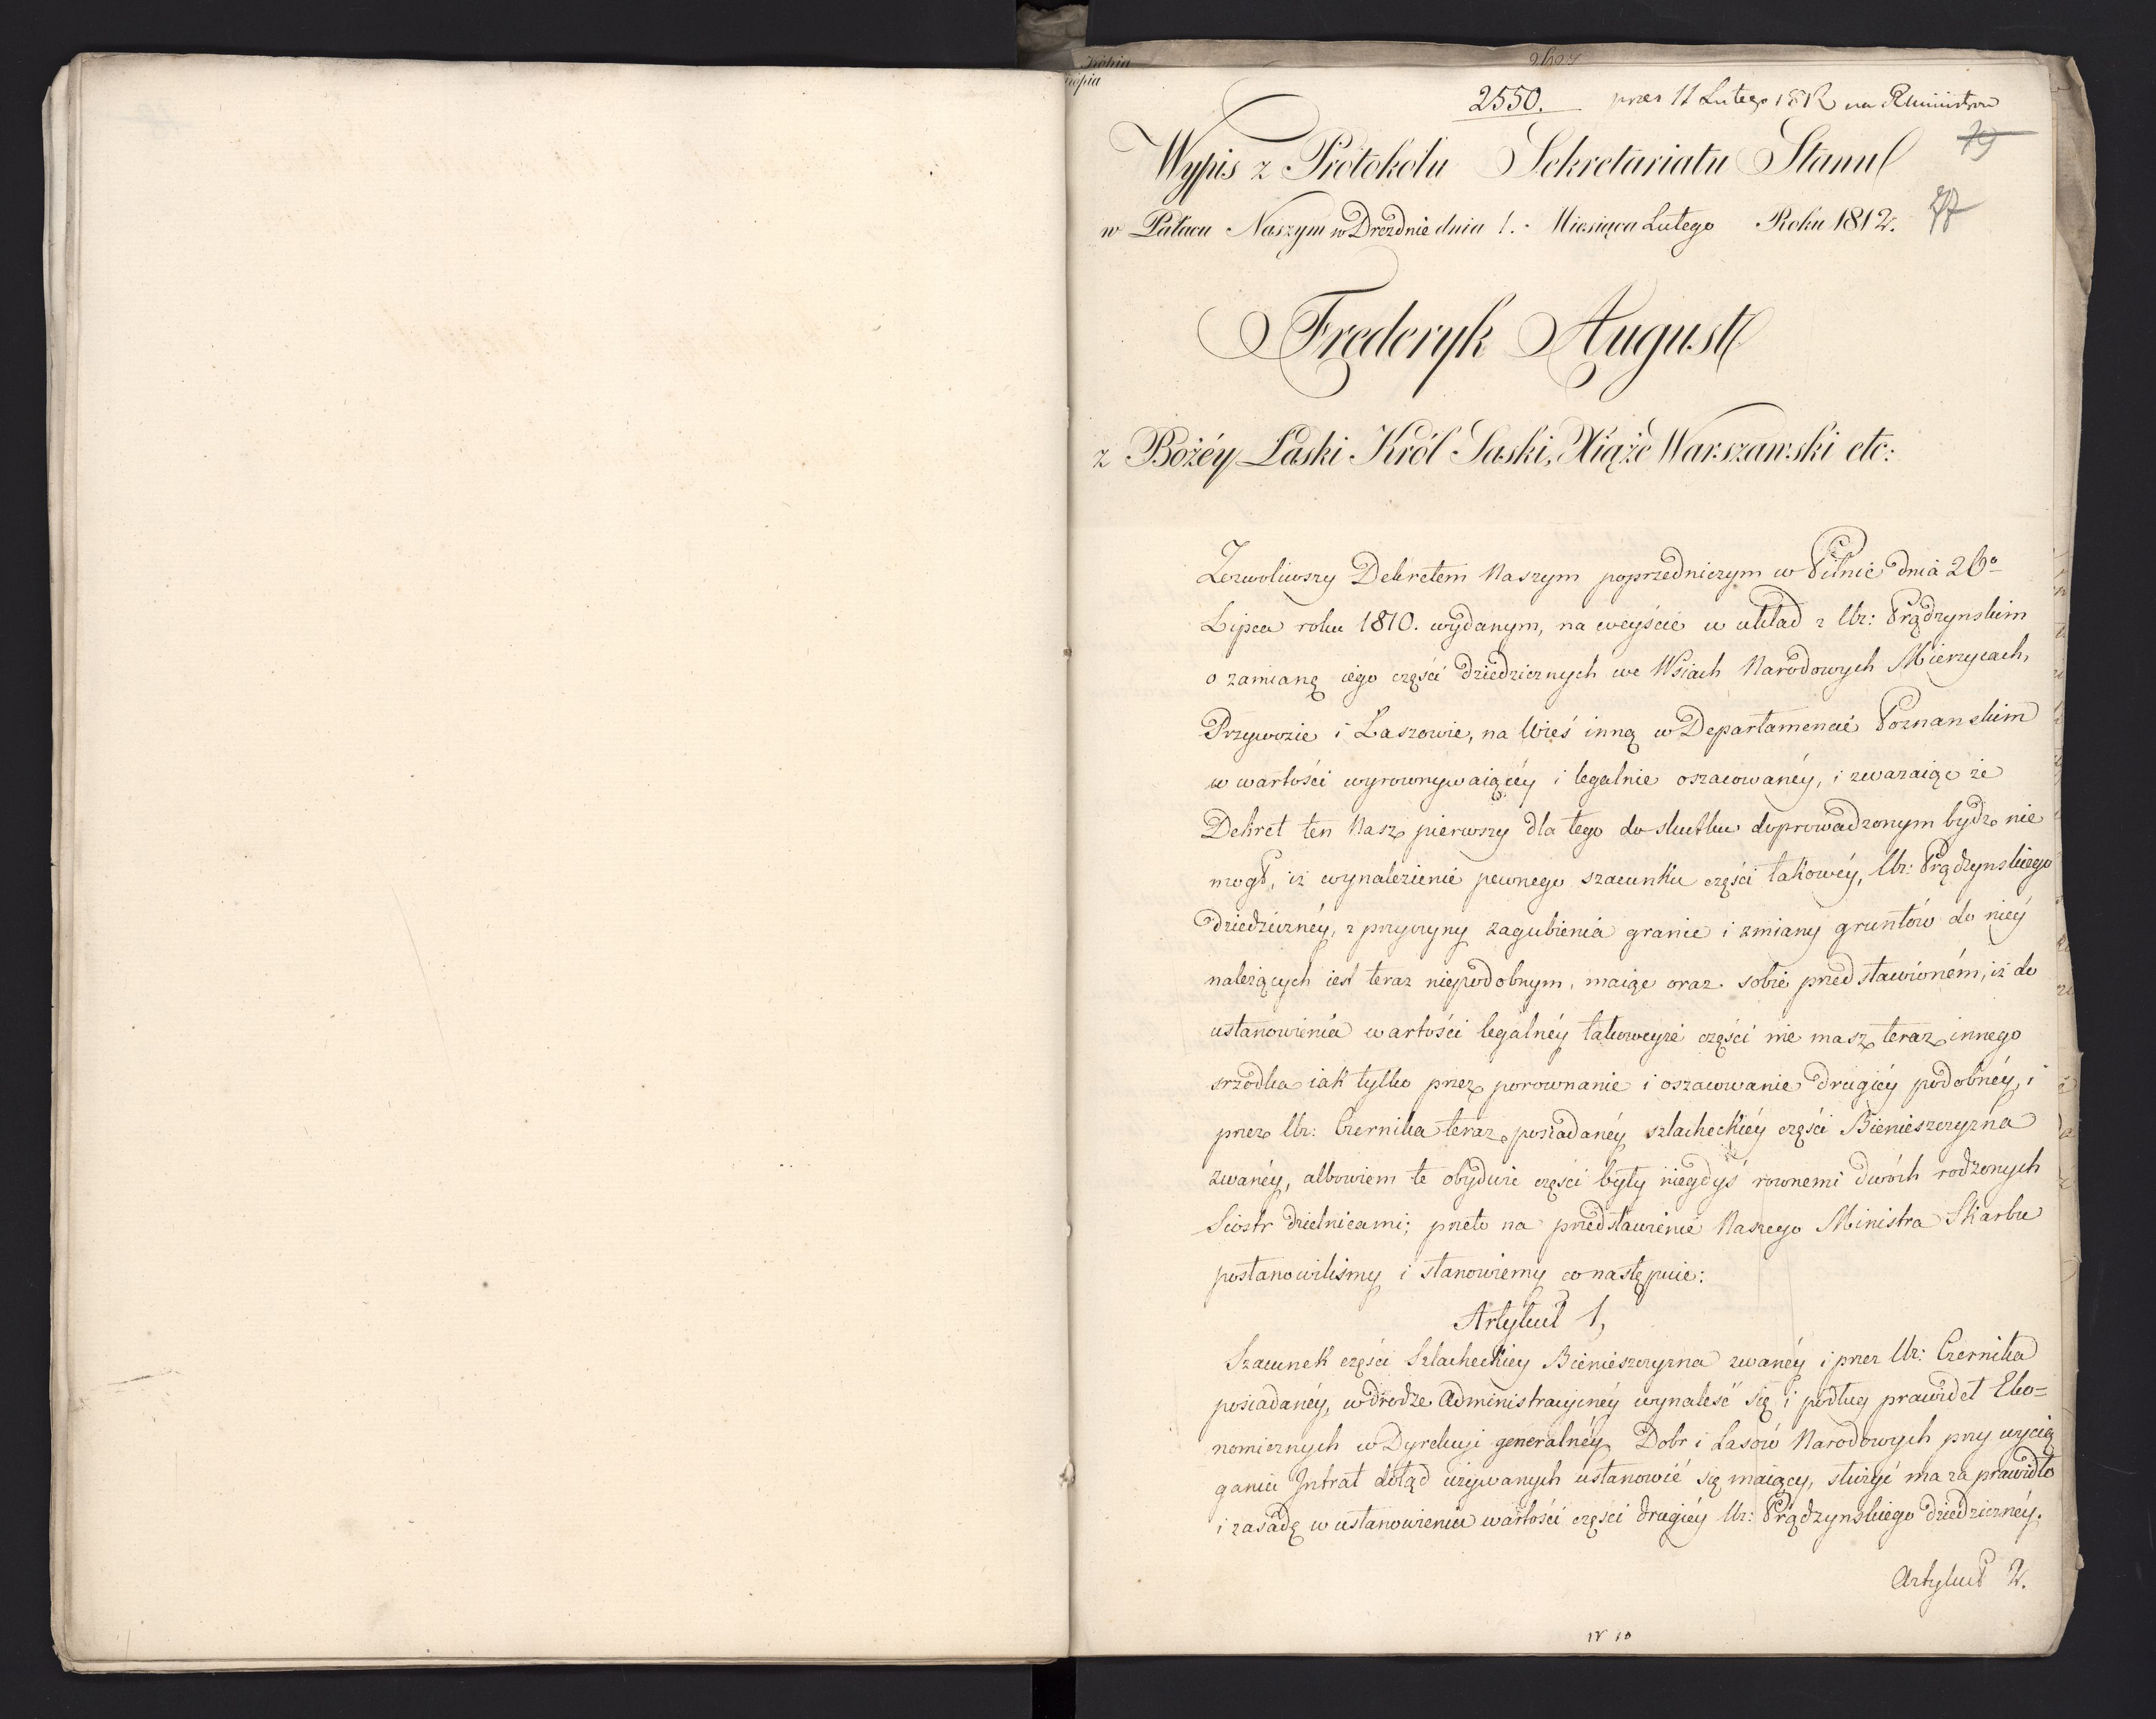 Kopia
Kopia
2550. prez 11 Lutego 1812 na R Ministrow
79
77
Wypis z Protokołu Sekretariatu Stanu
w Pałacu Naszym w Dreźdnie dnia 1. Miesiąca Lutego Roku 1812.
Frederyk August
z Bożéy Łaski Król Saski, Xiąże Warszawski etc:
Zezwoliwszy Dekretem Naszym poprzedniczym w Pilnic dnia 26o
Lipca roku 1810. wydanym, na weyście w układ z Ur: Prądzynskim
o zamianę iego części dziedzicznych we Wsiach Narodowych Mierzycach,
Przywozie i Łaszowie, na Wieś inną w Departamencie Poznanskim
w wartości wyrownywaiącéy i legalnie oszacowanéy, i zwazaiąc że
Dekret ten Nasz pierwszy dla tego do skutku doprowadzonym bydz nie
mogł, iż wynalezienie pewnego szacunku części takowéy, Ur: Prądzynskiego
dziedzicznéy, z przyczyny zagubienia granic i zmiany gruntów do niéy
należących iest teraz niepodobnym, maiąc oraz sobie przedstawioném, iż do
ustanowienia wartości legalnéy takoweyże części nie masz teraz innego
srzodka iak tylko przez porownanie i oszacowanie drugiéy podobnéy, i
przez Ur: Czernika teraz posiadanéy szlacheckiéy części Bienieszczyzna
zwanéy, albowiem te obydwie części były niegdyś rownemi dwóch rodzonych
Siostr dzielnicami; przeto na przedstawienie Naszego Ministra Skarbu
postanowiliśmy i stanowiemy co następuie:
Artykuł 1,
Szacunek części Szlacheckiey Bienieszczyzna zwanéy i przez Ur: Czernika
posiadanéy, w drodze Administracyinéy wynaleść się i podług prawideł Eko=
nomicznych w Dyrekcyi generalnéy Dobr i Lasów Narodowych przy wycią
ganiu Intrat dotąd używanych ustanowić się maiący, służyć ma za prawidło
i zasadę w ustanowieniu wartości części drugiéy Ur: Prądzynskiego dziedzicznéy.
Artykuł 2.